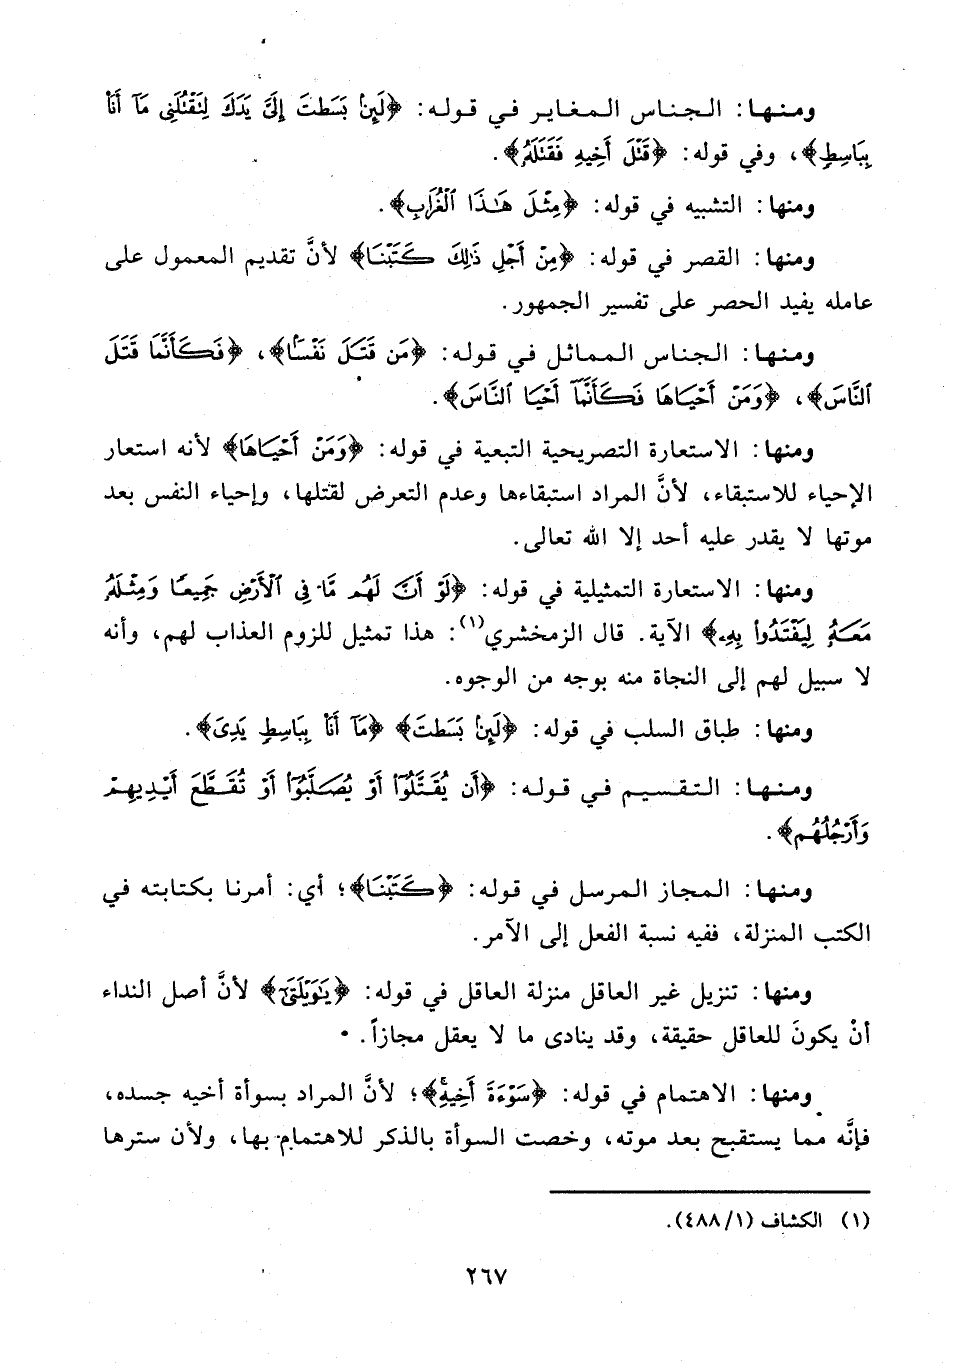 ومنها: الجناس المغاير في قوله: ﴿لَئِنۢ بَسَطتَ إِلَيَّ يَدَكَ لِتَقۡتُلَنِي مَآ أَنَا۠
بِبَاسِطٖ﴾، وفي قوله: ﴿قَتۡلَ أَخِيهِ فَقَتَلَهُۥ﴾.
ومنها: التشبيه في قوله: ﴿مِثۡلَ هَٰذَا ٱلۡغُرَابِ﴾.
ومنها: القصر في قوله: ﴿مِنۡ أَجۡلِ ذَٰلِكَ كَتَبۡنَا﴾ لأنَّ تقديم المعمول على
عامله يفيد الحصر على تفسير الجمهور.
ومنها: الجناس المماثل في قوله: ﴿مَن قَتَلَ نَفۡسَۢا﴾، ﴿فَكَأَنَّمَا قَتَلَ
ٱلنَّاسَ﴾، ﴿وَمَنۡ أَحۡيَاهَا فَكَأَنَّمَآ أَحۡيَا ٱلنَّاسَ﴾.
ومنها: الاستعارة التصريحية التبعية في قوله: ﴿وَمَنۡ أَحۡيَاهَا﴾ لأنه استعار
الإحياء للاستبقاء، لأنَّ المراد استبقاءها وعدم التعرض لقتلها، وإحياء النفس بعد
موتها لا يقدر عليه أحد إلا الله تعالى.
ومنها: الاستعارة التمثيلية في قوله: ﴿لَوۡ أَنَّ لَهُم مَّا فِي ٱلۡأَرۡضِ جَمِيعٗا وَمِثۡلَهُۥ
مَعَهُۥ لِيَفۡتَدُواْ بِهِۦ﴾ الآية. قال الزمخشري(١): هذا تمثيل للزوم العذاب لهم، وأنه
لا سبيل لهم إلى النجاة منه بوجه من الوجوه.
ومنها: طباق السلب في قوله: ﴿لَئِنۢ بَسَطتَ﴾ ﴿مَآ أَنَا۠ بِبَاسِطٖ يَدِيَ﴾.
ومنها: التقسيم في قوله: ﴿أَن يُقَتَّلُوٓاْ أَوۡ يُصَلَّبُوٓاْ أَوۡ تُقَطَّعَ أَيۡدِيهِمۡ
وَأَرۡجُلُهُم﴾.
ومنها: المجاز المرسل في قوله: ﴿كَتَبۡنَا﴾؛ أي: أمرنا بكتابته في
الكتب المنزلة، ففيه نسبة الفعل إلى الآمر.
ومنها: تنزيل غير العاقل منزلة العاقل في قوله: ﴿يَٰوَيۡلَتَىٰٓ﴾ لأنَّ أصل النداء
أنْ يكونَ للعاقل حقيقة، وقد ينادى ما لا يعقل مجازاً.
ومنها: الاهتمام في قوله: ﴿سَوۡءَةَ أَخِيهِۚ﴾؛ لأنَّ المراد بسوأة أخيه جسده،
فإنَّه مما يستقبح بعد موته، وخصت السوأة بالذكر للاهتمام بها، ولأن سترها
(١) الكشاف (٤٨٨/١).
٢٦٧